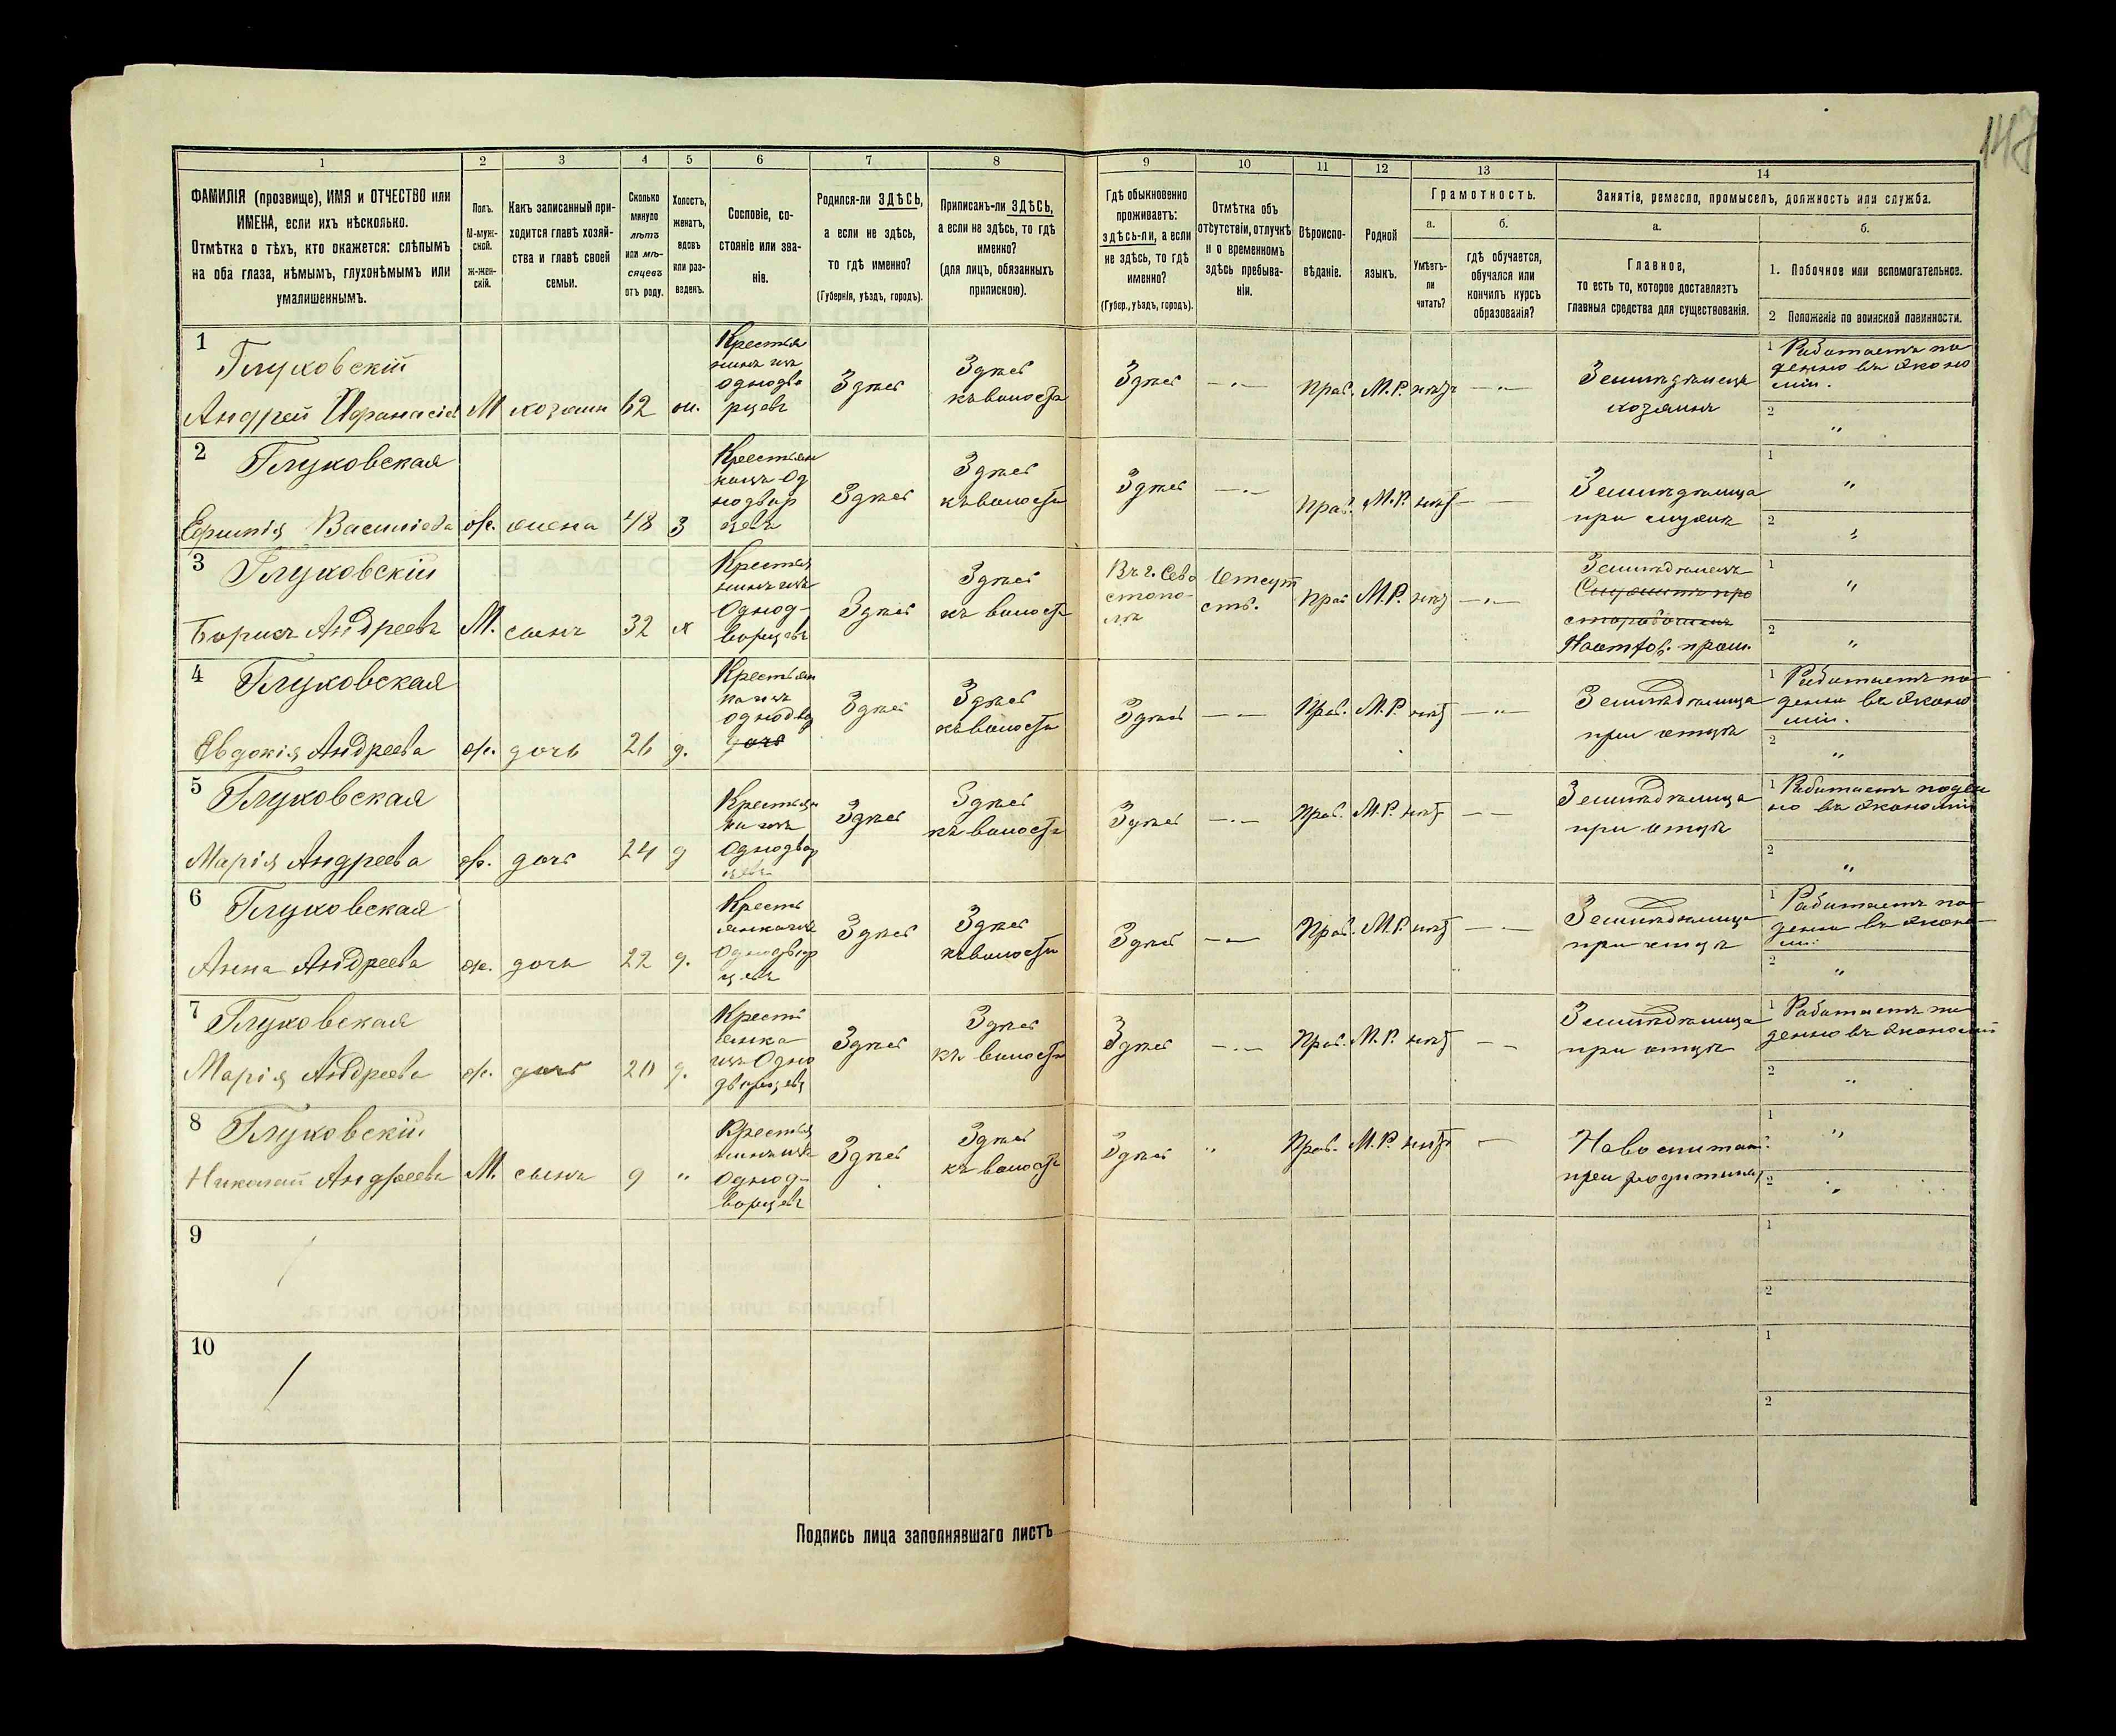 147
1 2 3 4 5 6 7 8 9 10 11 12 13 14
ФАМИЛІЯ (прозвище), ИМЯ и ОТЧЕСТВО или
ИМЕНА, если ихъ нѣсколько.
Отмѣтка о тѣхъ, кто окажется: слѣпымъ
на оба глаза, нѣмымъ, глухонѣмымъ или
умалишеннымъ.
Полъ.
М-муж-
ской.
ж-жен-
скій.
Какъ записанный при-
ходится главѣ хозяй-
ства и главѣ своей
семьи.
Сколько
минуло
лѣтъ
или мѣ-
сяцевъ
отъ роду.
Холостъ,
женатъ,
вдовъ
или раз-
веденъ.
Сословіе, со-
стояніе или зва-
ніе.
Родился-ли ЗДѢСЬ,
а если не здѣсь,
то гдѣ именно?
(Губернія, уѣздъ, городъ).
Приписанъ-ли ЗДѢСЬ,
а если не здѣсь, то гдѣ
именно?
(для лицъ, обязанныхъ
припискою).
Гдѣ обыкновенно
проживаетъ:
здѣсь-ли, а если
не здѣсь, то гдѣ
именно?
(Губер., уѣздъ, городъ).
Отмѣтка объ
отсутствіи, отлучкѣ
и о временномъ
здѣсь пребыва-
ніи.
Вѣроиспо-
вѣданіе.
Родной
языкъ.
Грамотность.
а.
Умѣетъ-
ли
читать?
б.
гдѣ обучается,
обучался или
кончилъ курсъ
образованія?
Занятіе, ремесло, промыселъ, должность или служба.
а.
Главное,
то есть то, которое доставляетъ
главныя средства для существованія.
б.
1. Побочное или вспомогательное.
2 Положеніе по воинской повинности.
1
Глуховскій
Андрей
М хозяин 62 ж.
Крестья
нинъ изъ
однодво
рцевъ
Здѣсь
Здѣсь
къ волости
Здѣсь
—„— Прав. М.Р. нѣтъ —„—
Земледѣлецъ
хозяинъ
1 Работаетъ по
денно въ эконо
міи.
2 „
2
Глуховская
Васильева
ж. жена 48 з
Крестьян
ка изъ Од
нодвор
цевъ
Здѣсь
Здѣсь
къ волости
Здѣсь
—„— Прав. М.Р. нѣтъ — —
Земледѣлица
при мужѣ
1 „
2 „
3
Глуховскій
Борисъ Андреевъ
М. сынъ 32 х
Крестья
нинъ изъ
Однод-
ворцевъ
Здѣсь
Здѣсь
къ волости
Въ г. Сева
стопо-
лѣ
Отсут
ств.
Прав М.Р. нѣт —„—
Земледѣлецъ
1 „
2 „
4
Глуховская
Евдокія Андреева
ж. дочь 26 д.
Крестьян
ка изъ
однодво
Здѣсь
Здѣсь
къ волости
Здѣсь
— — Прав. М.Р. нѣт —„—
Земледѣлица
при отцѣ
1 Работаетъ по
денно въ эконо
міи.
2 „
5
Глуховская
Марія Андреева
ж. дочь 24 д
Крестьян
ка изъ
Однодвор
цевъ
Здѣсь
Здѣсь
къ волости
Здѣсь
—„— Прав. М.Р. нѣт — —
Земледѣлица
при отцѣ
1 Работаетъ поден
но въ экономіи
2 „
6
Глуховская
Анна Андреева
ж. дочь 22 д.
Кресть
янка изъ
Однодвор
цевъ
Здѣсь
Здѣсь
къ волости
Здѣсь
—„— Прав. М.Р. нѣт —„—
Земледѣлица
при отцѣ
1 Работаетъ по
денно въ эконо
міи
2 „
7
Глуховская
Марія Андреева
ж. дочь 20 д.
Кресть
янка
изъ Одно
дворцевъ
Здѣсь
Здѣсь
къ волости
Здѣсь
—„— Прав. М.Р. нѣт — —
Земледѣлица
при отцѣ
1 Работаетъ по
денно въ экономіи
2 „
8
Глуховскій
Николай Андреевъ
М. сынъ 9 „
Крестья
нинъ изъ
Однод-
ворцевъ
Здѣсь
Здѣсь
къ волости
Здѣсь
„ Прав. М.Р. нѣтъ —
при
1 „
2 „
9
1
2
10
1
2
Подпись лица заполнявшаго листъ